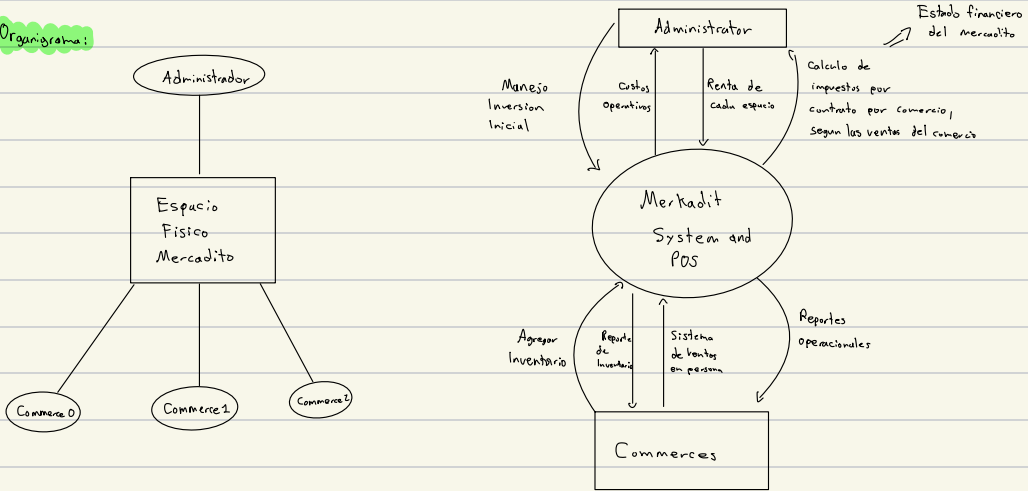 Organigrama:
Administrador
Espacio
Fisico
Mercadito
Commerce 0
Commerce 1
Commerce 2
Administrator
Estado financiero
del mercadito
Manejo
Inversion
Inicial
Costos
operativos
Renta de
cada espacio
Calculo de
impuestos por
contrato por comercio,
segun las ventas del comercio
Merkadit
System and
POS
Agregar
Inventario
Reporte
de
Inventario
Sistema
de ventas
en persona
Reportes
operacionales
Commerces